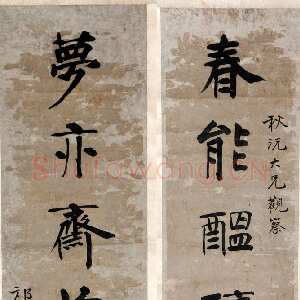 秋沅大兄觀察
春能醞
夢亦齋
Shufawang.cn